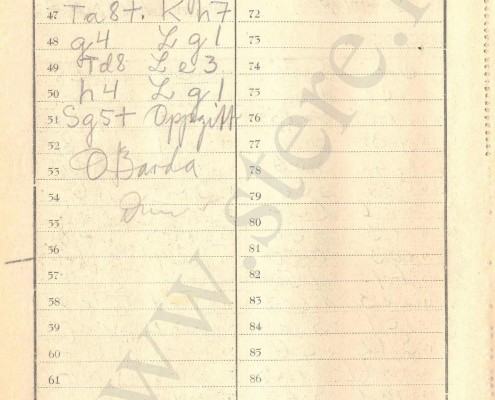 47 Ta8+. K h7
48 g4 L g1
49 Td8 L e3
50 h4 L g1
51 Sg5+ Oppgitt
52
53 OBarda
54
55
56
57
58
59
60
61
72
73
74
75
76
77
78
79
80
81
82
83
84
85
86
www.stere.